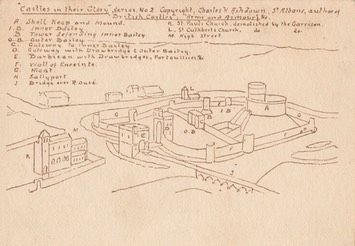 "Castles in their Glory" Series. No 2 Copyright, Charles H. Ashdown, St Albans, author of
"British Castles", "Arms and Armour", &c.
A. Shell Keep and Mound.
I.B. Inner Bailey
B. Tower defending Inner Bailey.
O.B. Outer Bailey.
C. Gateway to Inner Bailey
D. Gateway with Drawbridge & Outer Bailey.
E. Barbican with Drawbridges, Portcullis &c
F. Wall of Enceinte
G. Moat.
H. Sallyport
J. Bridge over Ouse.
K. St Paul's Church, demolished by the Garrison
L. St Cuthbert's Church, do do.
M. High Street